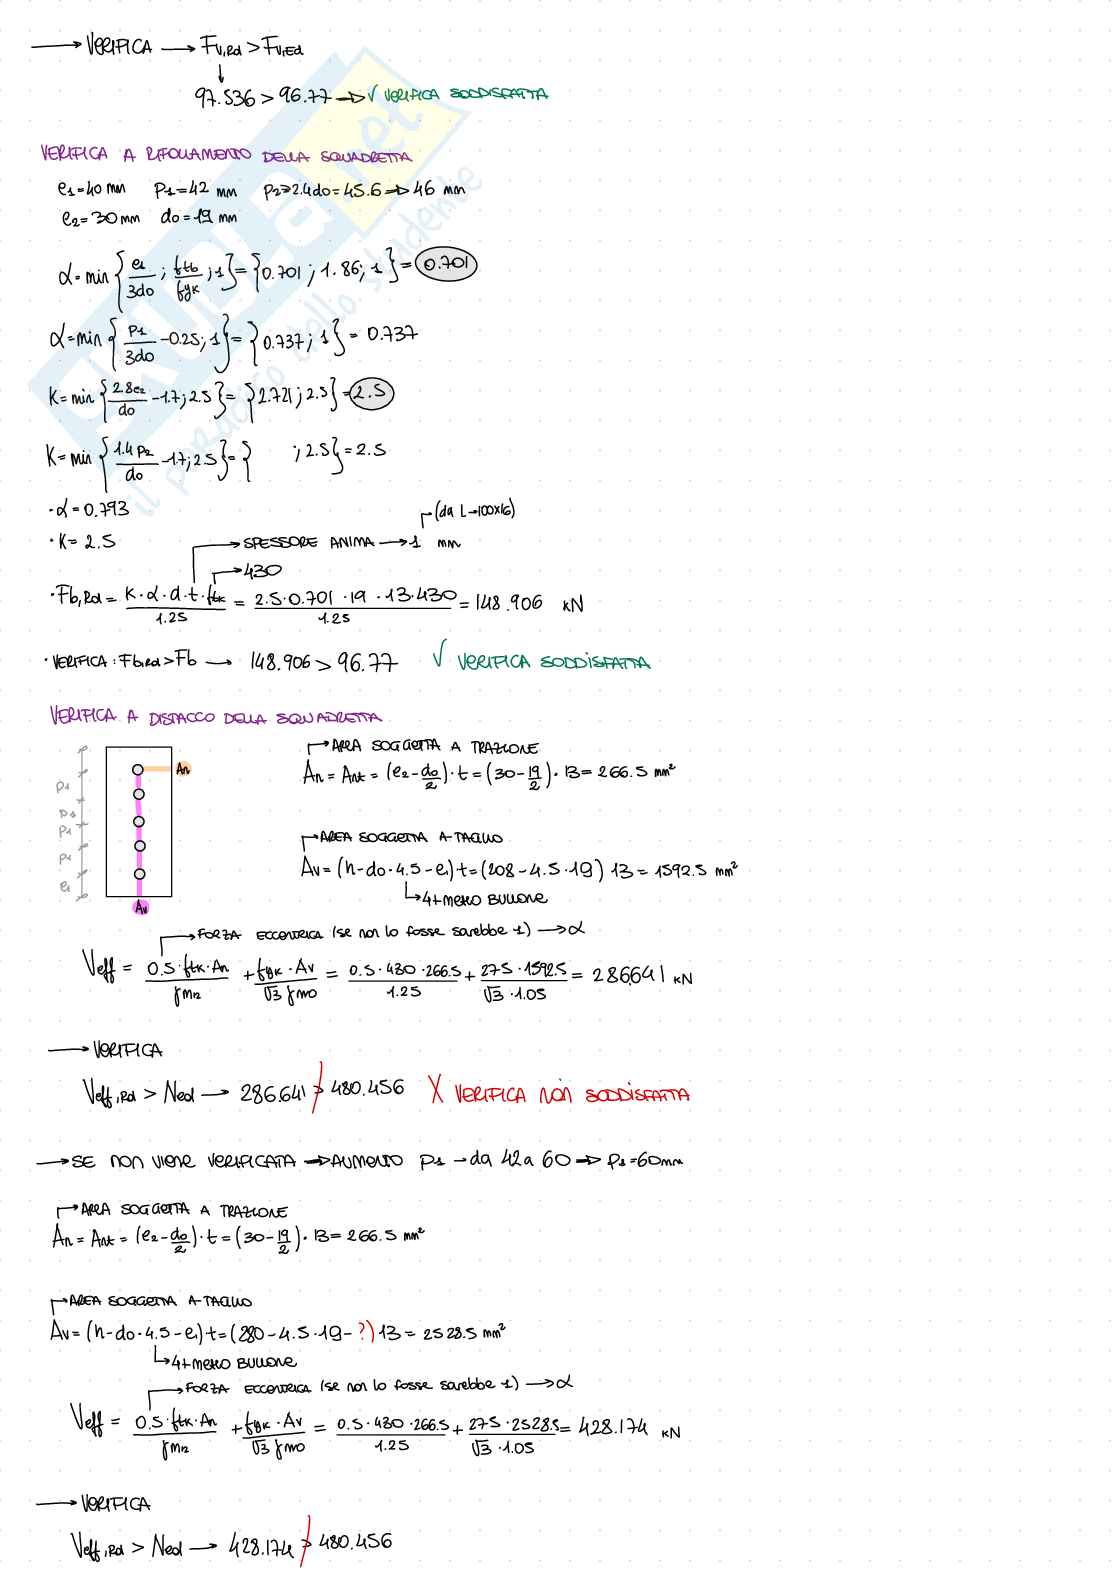 → VERIFICA → Fv,Rd > Fv,Ed
↓
97.536 > 96.77 → √ VERIFICA SODDISFATTA
VERIFICA A RIFOLLAMENTO DELLA SQUADRETTA
e1=40 mm p1=42 mm p2≥2.4do=45.6→46 mm
e2=30mm do=19 mm
α=min{e1/3do; ftb/fyk; 1}={0.701; 1.86; 1}=0.701
α=min{p1/3do -0.25; 1}={0.737; 1}=0.737
K=min{2.8e2/do -1.7; 2.5}={2.721; 2.5}=2.5
K=min{1.4p2/do -1.7; 2.5}={ ; 2.5}=2.5
·α=0.793
(da L→100x16)
·K=2.5
→SPESSORE ANIMA→1 mm
→430
·Fb,Rd= K·α·d·t·ftk/1.25 = 2.5·0.701·19·13·430/1.25 = 148.906 kN
·VERIFICA: Fb,Rd>Fb → 148.906 > 96.77 √ VERIFICA SODDISFATTA
VERIFICA A DISTACCO DELLA SQUADRETTA
→AREA SOGGETTA A TRAZIONE
An = Ant = (e2-do/2)·t=(30-19/2)·13=266.5 mm²
An
p1
p1
p1
p1
e1
Av
→AREA SOGGETTA A TAGLIO
Av=(h-do·4.5-e1)t=(208-4.5·19)13=1592.5 mm²
→4+MEZZO BULLONE
→FORZA ECCENTRICA (se non lo fosse sarebbe 1) →α
Veff = 0.5·ftk·An/γm2 + fyk·Av/√3 γm0 = 0.5·430·266.5/1.25 + 275·1592.5/√3·1.05 = 286.641 kN
→ VERIFICA
Veff,Rd > Ned → 286.641 > 480.456 X VERIFICA NON SODDISFATTA
→SE NON VIENE VERIFICATA →AUMENTO p1 → da 42 a 60 → p1=60mm
→AREA SOGGETTA A TRAZIONE
An = Ant = (e2-do/2)·t=(30-19/2)·13=266.5 mm²
→AREA SOGGETTA A TAGLIO
Av=(h-do·4.5-e1)t=(280-4.5·19-?)13=2528.5 mm²
→4+MEZZO BULLONE
→FORZA ECCENTRICA (se non lo fosse sarebbe 1) →α
Veff = 0.5·ftk·An/γm2 + fyk·Av/√3 γm0 = 0.5·430·266.5/1.25 + 275·2528.5/√3·1.05 = 428.174 kN
→ VERIFICA
Veff,Rd > Ned → 428.174 > 480.456
SKUOLA.net
il paradiso dello studente